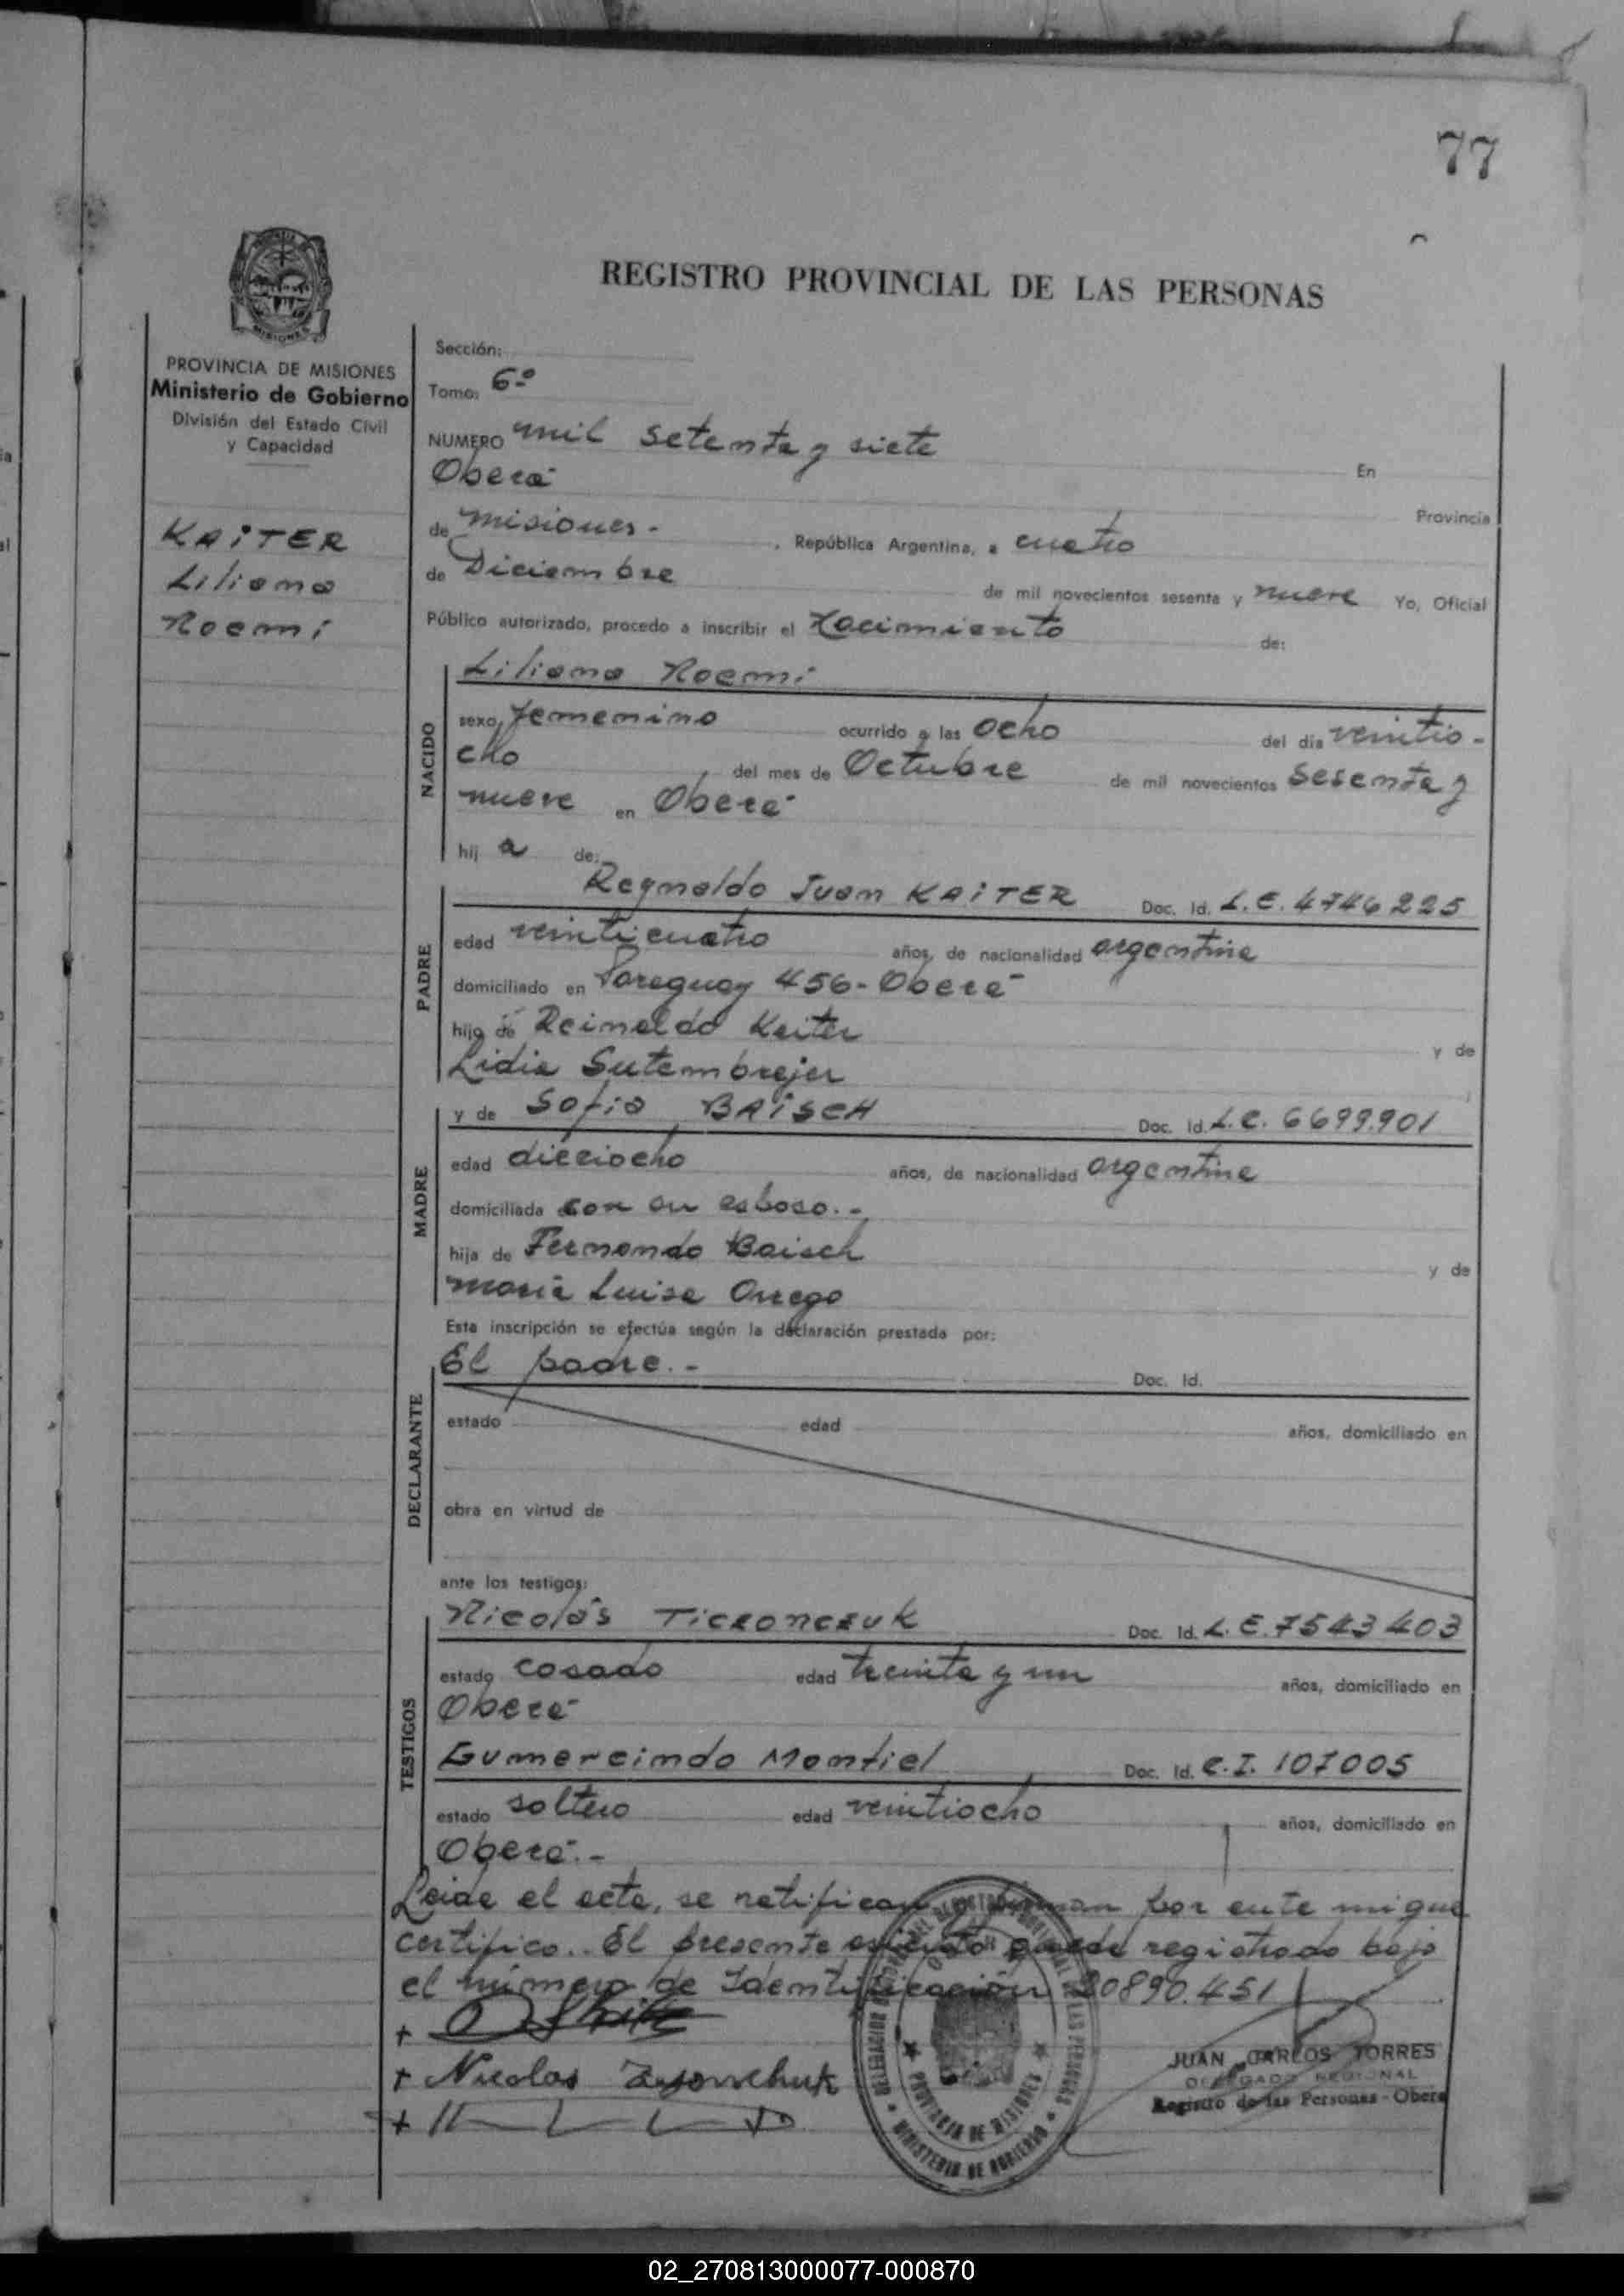 77
REGISTRO PROVINCIAL DE LAS PERSONAS
MISIONES
PROVINCIA DE MISIONES
Ministerio de Gobierno
División del Estado Civil
y Capacidad
KAiTER
Liliana
Noemi
Sección:
Tomo: 6º
NUMERO mil setenta y siete En
Oberá Provincia
de misiones.- , República Argentina, a cuatro
de Diciembre de mil novecientos sesenta y nueve Yo, Oficial
Público autorizado, procedo a inscribir el Nacimiento de:
Liliana Noemi
NACIDO
sexo femenino ocurrido a las ocho del día veintio-
cho del mes de Octubre de mil novecientos sesenta y
nueve en Oberá
hij a de:
PADRE
Reynaldo Juan KAiTER Doc. Id. L.E. 4746225
edad veinticuatro años, de nacionalidad argentina
domiciliado en Paraguay 456-Oberá
hijo de Reinaldo Kaiter y de
Lidia Sutembrejer
MADRE
y de Sofia BAiSCH Doc. Id. L.C. 6699.901
edad dieciocho años, de nacionalidad argentina
domiciliada con su esposo.-
hija de Fernando Baisch y de
maria Luisa Orrego
Esta inscripción se efectúa según la declaración prestada por:
DECLARANTE
El padre.- Doc. Id.
estado edad años, domiciliado en
obra en virtud de
ante los testigos:
TESTIGOS
Nicolás TICRONCZUK Doc. Id. L.E. 7543403
estado casado edad treinta y un años, domiciliado en
Oberá
Gumercindo Montiel Doc. Id. C.I. 107005
estado soltero edad veintiocho años, domiciliado en
Oberá.-
Leida el acta, se ratifican y firman por ante mi que
certifico.. El presente asiento queda registrado bajo
el número de Identificación 20890.451
+
+ Nicolas
+
PROVINCIA DE MISIONES
MINISTERIO DE GOBIERNO
JUAN CARLOS TORRES
DELEGADO REGIONAL
Registro de las Personas - Oberá
02_270813000077-000870